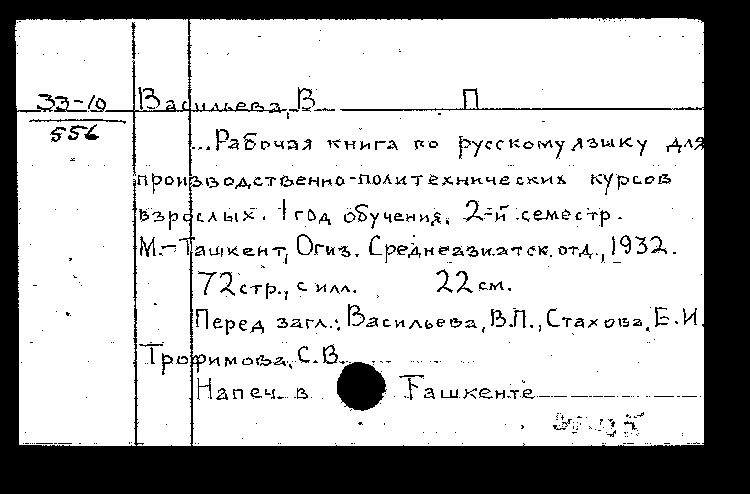 33-10
556
Васильева, В П
...Рабочая книга по русскому языку для
производственно-политехнических курсов
взрослых. 1 год обучения, 2-й семестр.
М.-Ташкент, Огиз. Среднеазиатск. отд., 1932.
72 стр., с илл. 22 см.
Перед загл.: Васильева, В.П., Стахова, Е.И.
Трофимова, С.В.
Напеч. в Ташкенте